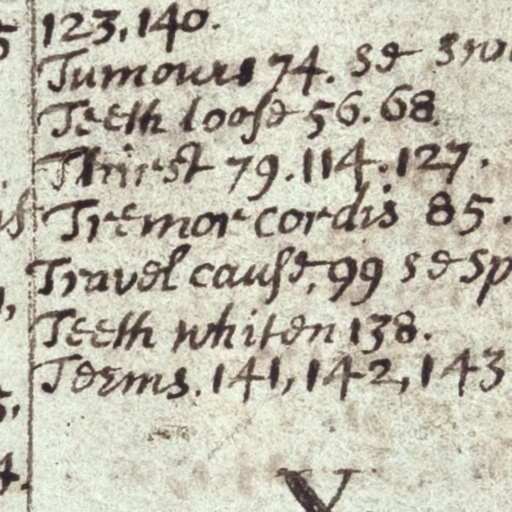 123, 140.
Tumours 74. se
Teeth loose 56. 68
Thirst 79. 114. 127.
Tremor cordis 85.
Travel cause, 99 se sp
Teeth whiten 138.
Teems. 141, 142, 143
V